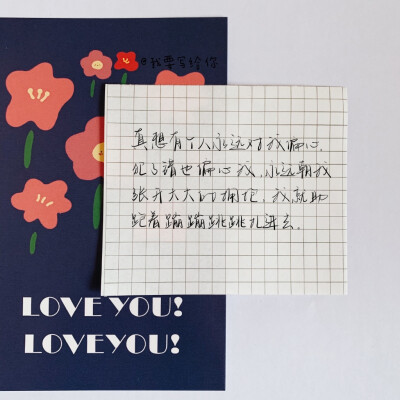 @我要写给你
真想有个人永远对我偏心,
犯了错也偏心我,永远朝我
张开大大的拥抱,我就助
跑着蹦蹦跳跳扎进去.
LOVE YOU!
LOVEYOU!